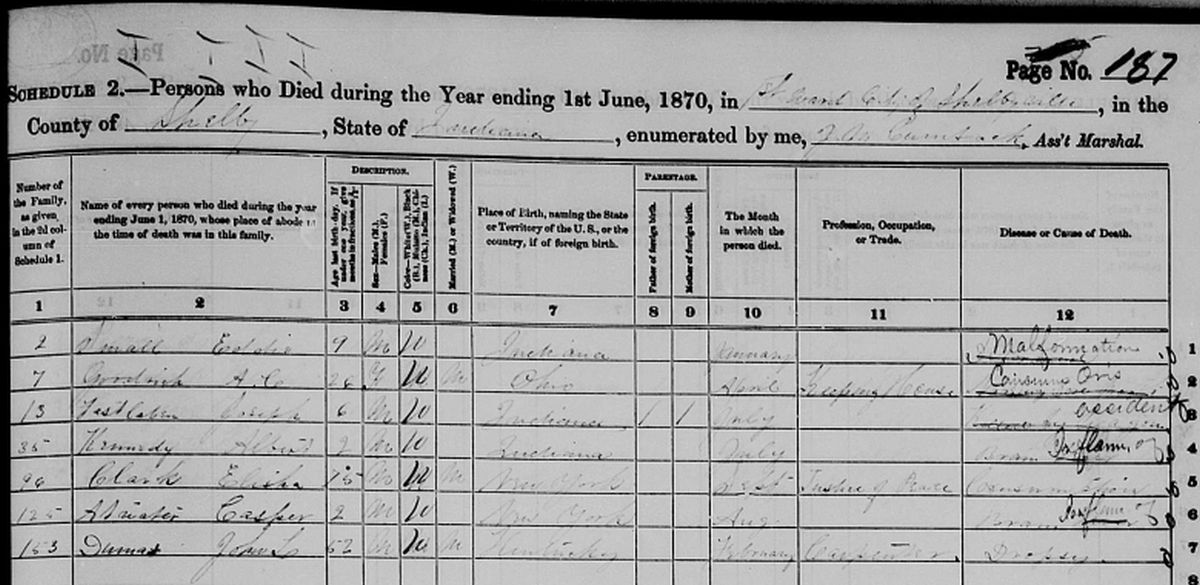 Page No. 187
SCHEDULE 2.—Persons who Died during the Year ending 1st June, 1870, in 1st Ward City of Shelbyville, in the
County of Shelby, State of Indiana, enumerated by me, Ass't Marshal.
Number of the Family, as given in the 2d column of Schedule 1.
Name of every person who died during the year ending June 1, 1870, whose place of abode at the time of death was in this family.
DESCRIPTION.
Age last birth-day. If under one year, give months in fractions, as
Sex—Males (M.), Females (F.)
Color—White (W.), Black (B.), Mulatto (M.), Chinese (Ch.), Indian (I.)
Married (M.) or Widowed (W.)
Place of Birth, naming the State or Territory of the U. S., or the country, if of foreign birth.
PARENTAGE.
Father of foreign birth.
Mother of foreign birth.
The Month in which the person died.
Profession, Occupation, or Trade.
Disease or Cause of Death.
1 2 3 4 5 6 7 8 9 10 11 12
2 Small 9 M W Indiana January Malformation 1
7 A 26 F W M Ohio April Keeping House 2
13 Joseph 6 M W Indiana 1 1 July 3
35 Kennedy Albert 2 M W Indiana July Inflam. of 4
96 Clark Elisha 75 M W M New York Sept Justice of Peace Consumption 5
125 Casper 2 M W New York Aug Inflam of 6
153 Dumas John 52 M W M Kentucky February Carpenter Dropsy 7